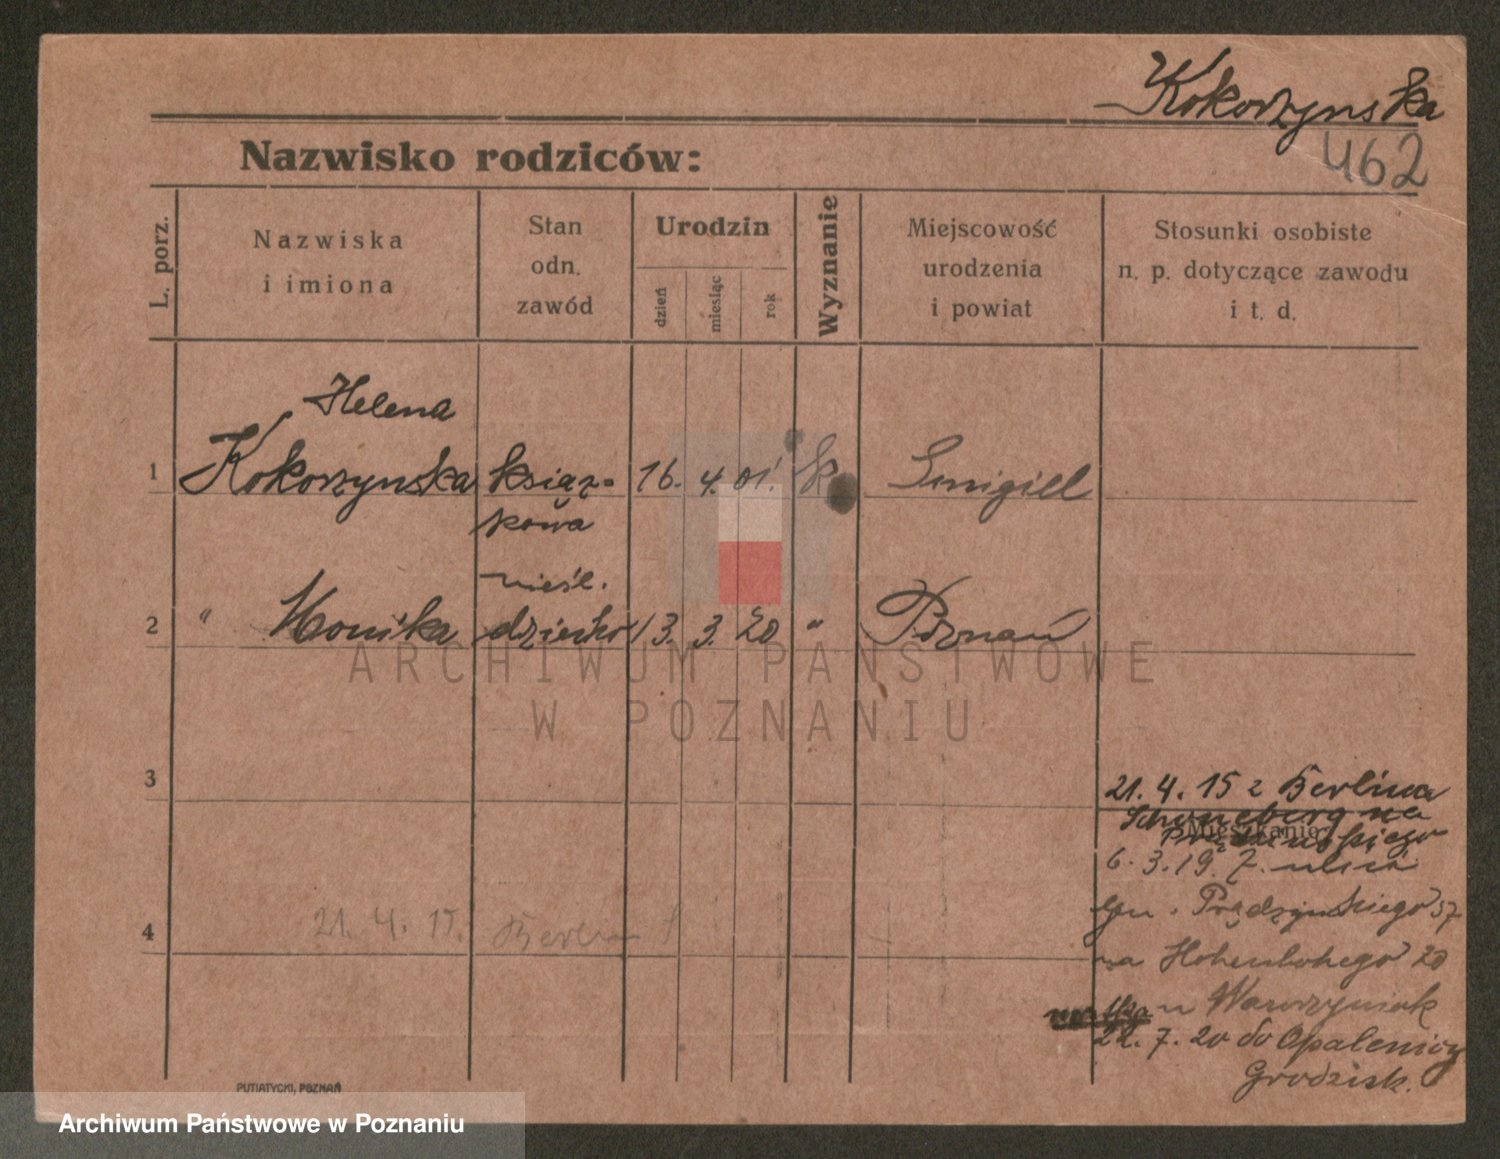 Kokorzynska
462
Nazwisko rodziców:
L. porz.
Nazwiska
i imiona
Stan
odn.
zawód
Urodzin
dzień
miesiąc
rok
Wyznanie
Miejscowość
urodzenia
i powiat
Stosunki osobiste
n. p. dotyczące zawodu
i t. d.
Helena
1 Kokorzynska książ= 16. 4. 01. k Smigiel
kowa
nieśl.
2 " Monika dziecko 13. 3. 20 " Poznań
ARCHIWUM PAŃSTWOWE
W POZNANIU
3
21. 4. 15 z Berlina
Schöneberg na
Mieszkanie
6. 3. 19. Z. ulicá
Prądzyńskiego 57
na Hohenlohego 20
u Wawrzyniak
22. 7. 20 do Opalenicy
Grodzisk.
4 21. 4. 15. Berlin
PUTIATYCKI, POZNAŃ
Archiwum Państwowe w Poznaniu